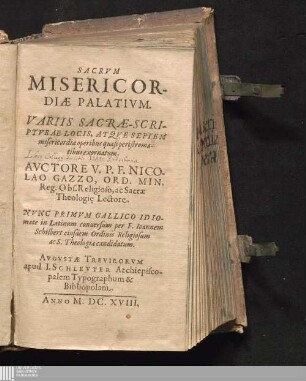 SACRVM
MISERICOR-
DIÆ PALATIVM.
VARIIS SACRÆ-SCRI-
PTVRAE LOCIS, ATQVE SEPTEM
misericordiæ operibus quasi peristroma-
tibus exornatum.
AVCTORE V. P. F. NICO-
LAO GAZZO, ORD. MIN.
Reg. Obs. Religioso, ac Sacræ
Theologiæ Lectore.
NVNC PRIMVM GALLICO IDIO-
mate in Latinum conuersum per F. Ioannem
Schilbert eiusdem Ordinis Religiosum
ac S. Theologiæ candidatum.
AVGVSTÆ TREVIRORVM
apud I. SCHLEVTER Archiepisco-
palem Typographum &
Bibliopolam.
ANNO M. DC. XVIII.